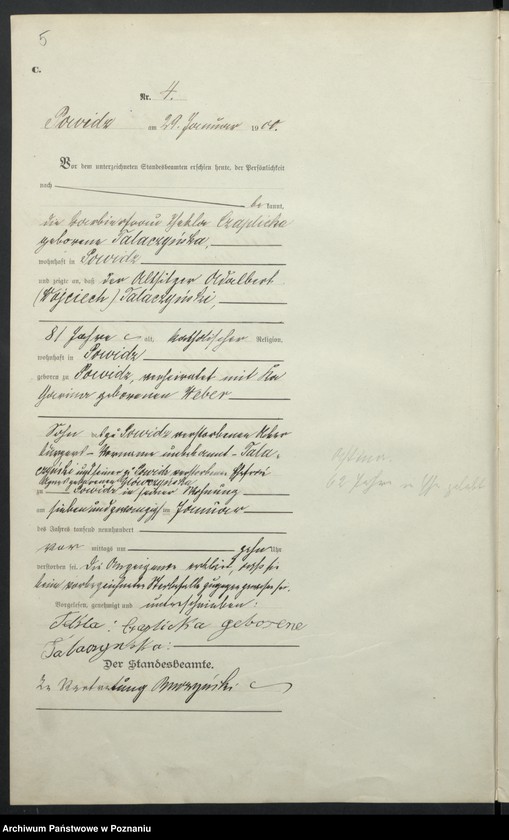 5
C.
Nr. 4.
Powidz am 29. Januar 1900.
Vor dem unterzeichneten Standesbeamten erschien heute, der Persönlichkeit
nach
be kannt,
die Barbierfrau Thekla Czaplicka
geborene Talaczyńska,
wohnhaft in Powidz
und zeigte an, daß der Altsitzer Adalbert
(Wojciech) Talaczyński,
81 Jahre alt, katholischer Religion,
wohnhaft in Powidz
geboren zu Powidz, verheiratet mit Ka
tharina geborenen Weber
Sohn des zu Powidz verstorbenen
Vorname unbekannt Tala-
czyński und seiner zu Powidz verstorbenen Ehefrau
Agnes geborenen
zu Powidz in seiner Wohnung
am siebenundzwanzigsten Januar
des Jahres tausend neunhundert
vor mittags um zehn Uhr
verstorben sei. Die Anzeigende erklärt, daß sie
beim vorbezeichneten Sterbefalle zugegen gewesen sei.
Vorgelesen, genehmigt und unterschrieben:
Tekla Czaplicka geborene
Talaczyńska
Der Standesbeamte.
In Vertretung
62 Jahre in Ehe gelebt
Archiwum Państwowe w Poznaniu